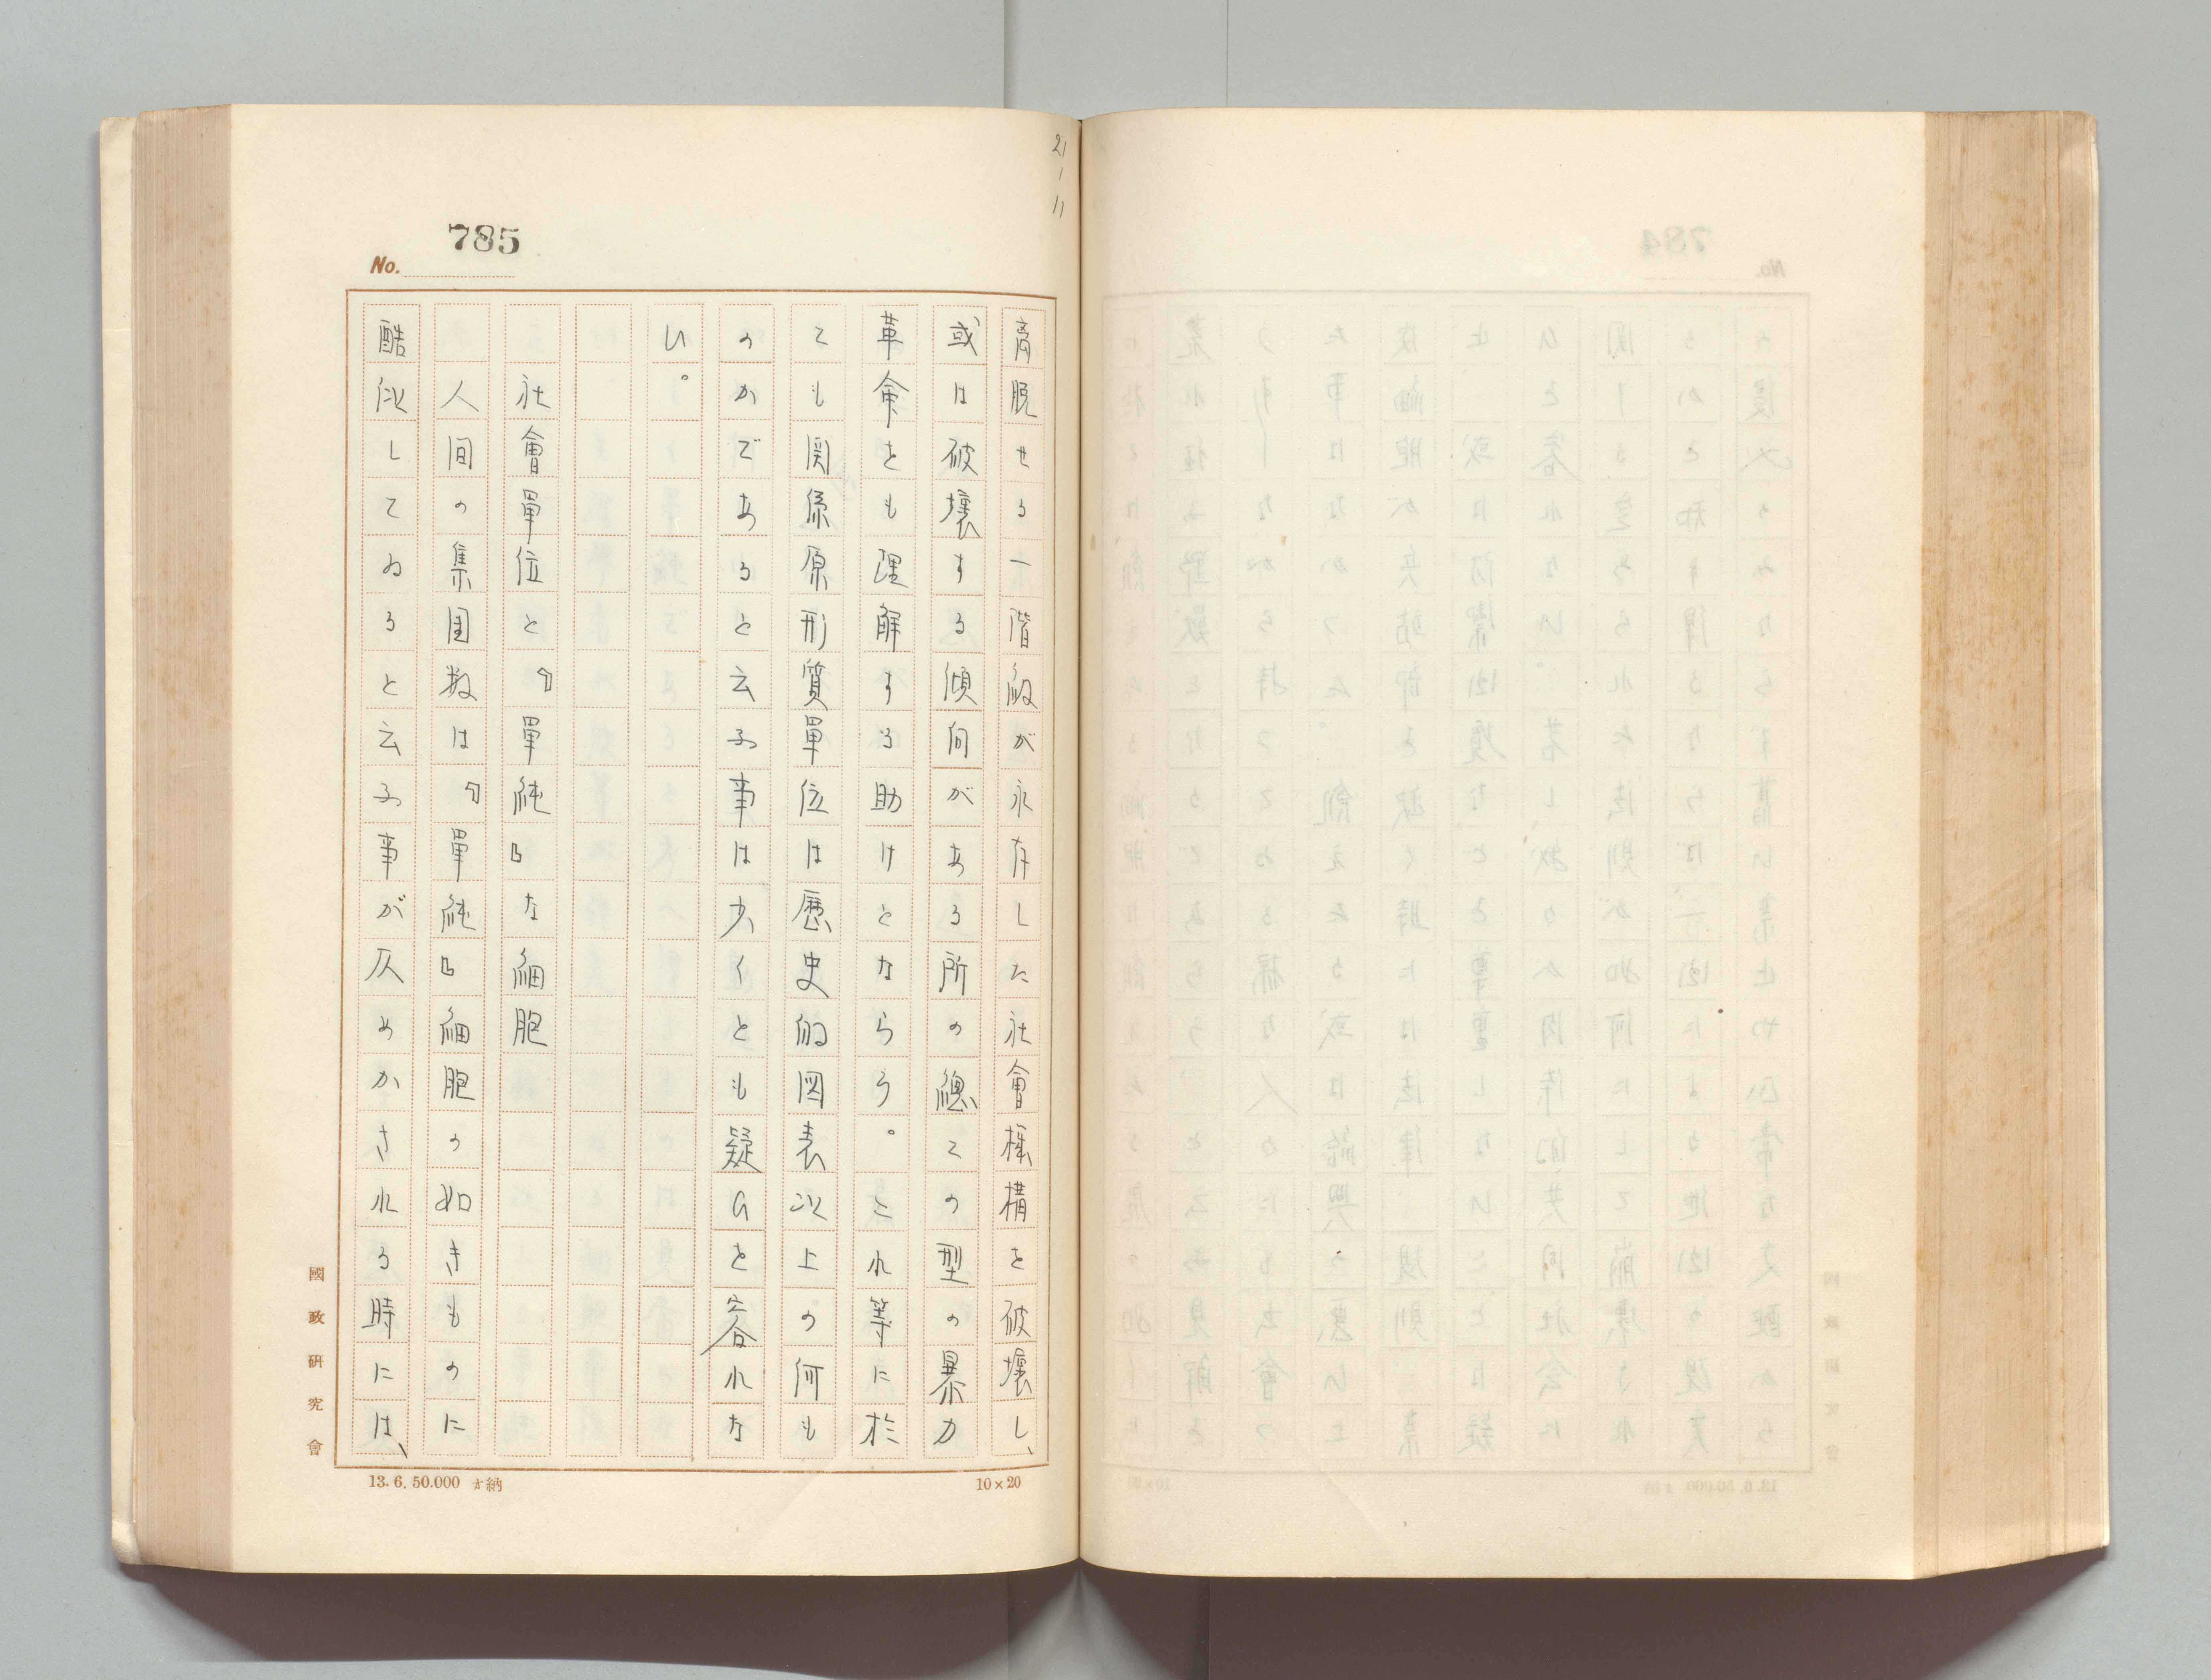 21
1
11
No. 785
离脱せる一階級が永存した社會機構を破壞し、
或は破壞する傾向がある所の總ての型の暴力
革命をも理解する助けとならう。これ等に於
ても関係原形質單位は歴史的図表以上の何も
のかであると云ふ事は少くとも疑ひを容れな
い。
社會單位と『單純』な細胞
人間の集団数は『單純』細胞の如きものに
酷似してゐると云ふ事が仄めかされる時には、
國政研究會
10×20
13.6.50.000 納